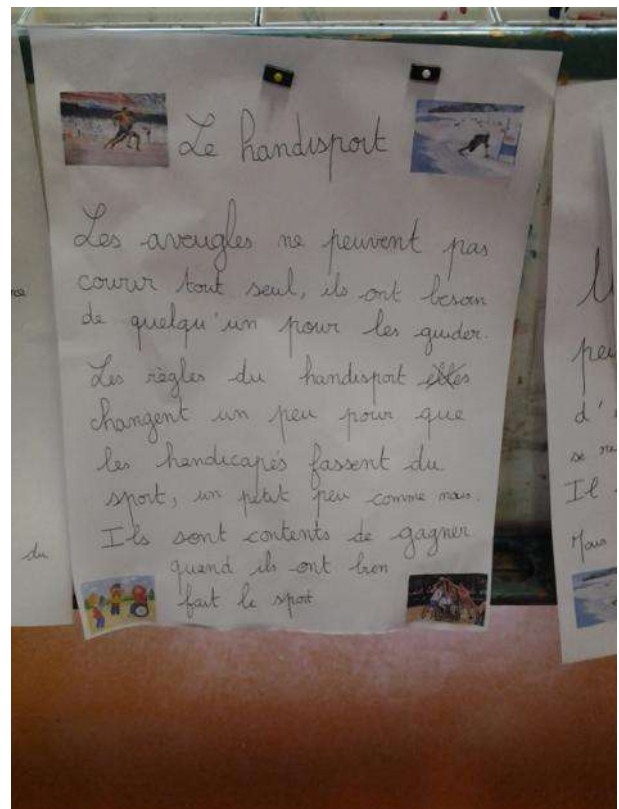 Le handisport
Les aveugles ne peuvent pas
courir tout seul, ils ont besoin
de quelqu'un pour les guider.
Les règles du handisport elles
changent un peu pour que
les handicapés fassent du
sport, un petit peu comme nous.
Ils sont contents de gagner
quand ils ont bien
fait le sport
du
peu
d'
se
Il
Mais